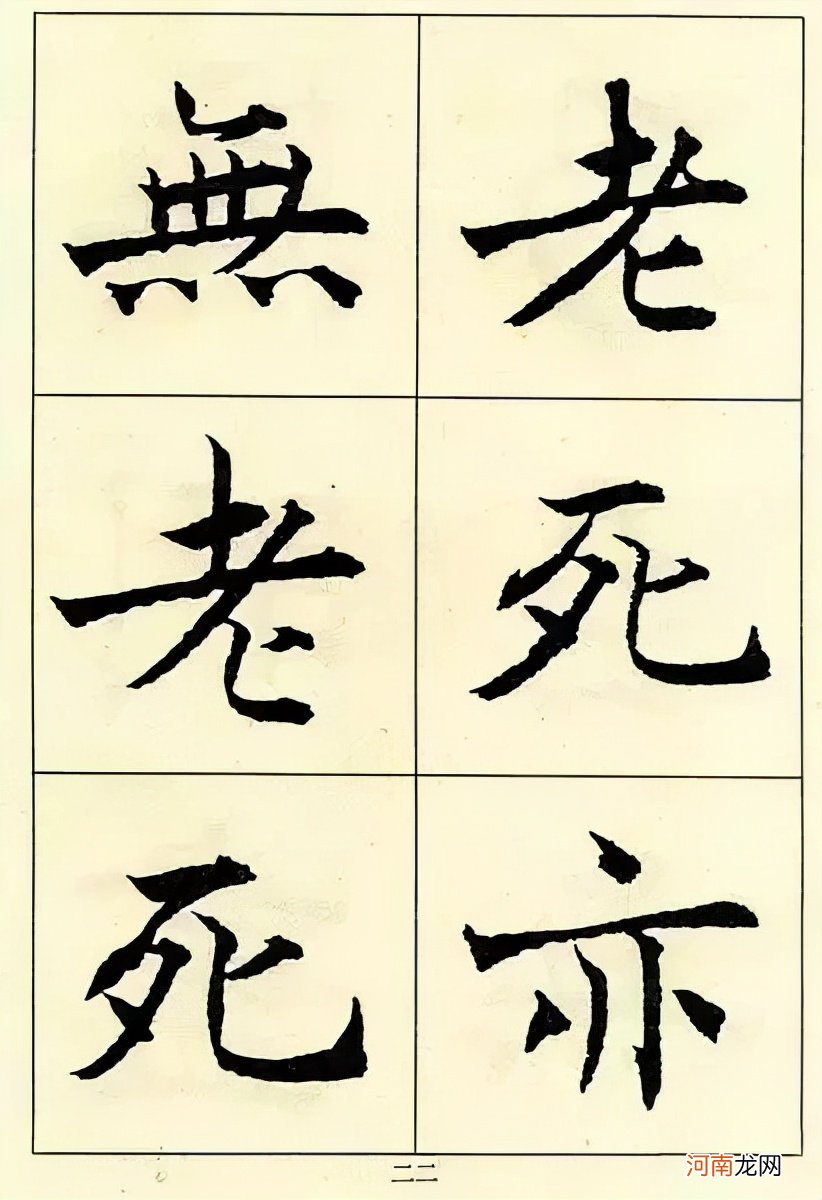 老死亦
無老死
二二
河南龙网